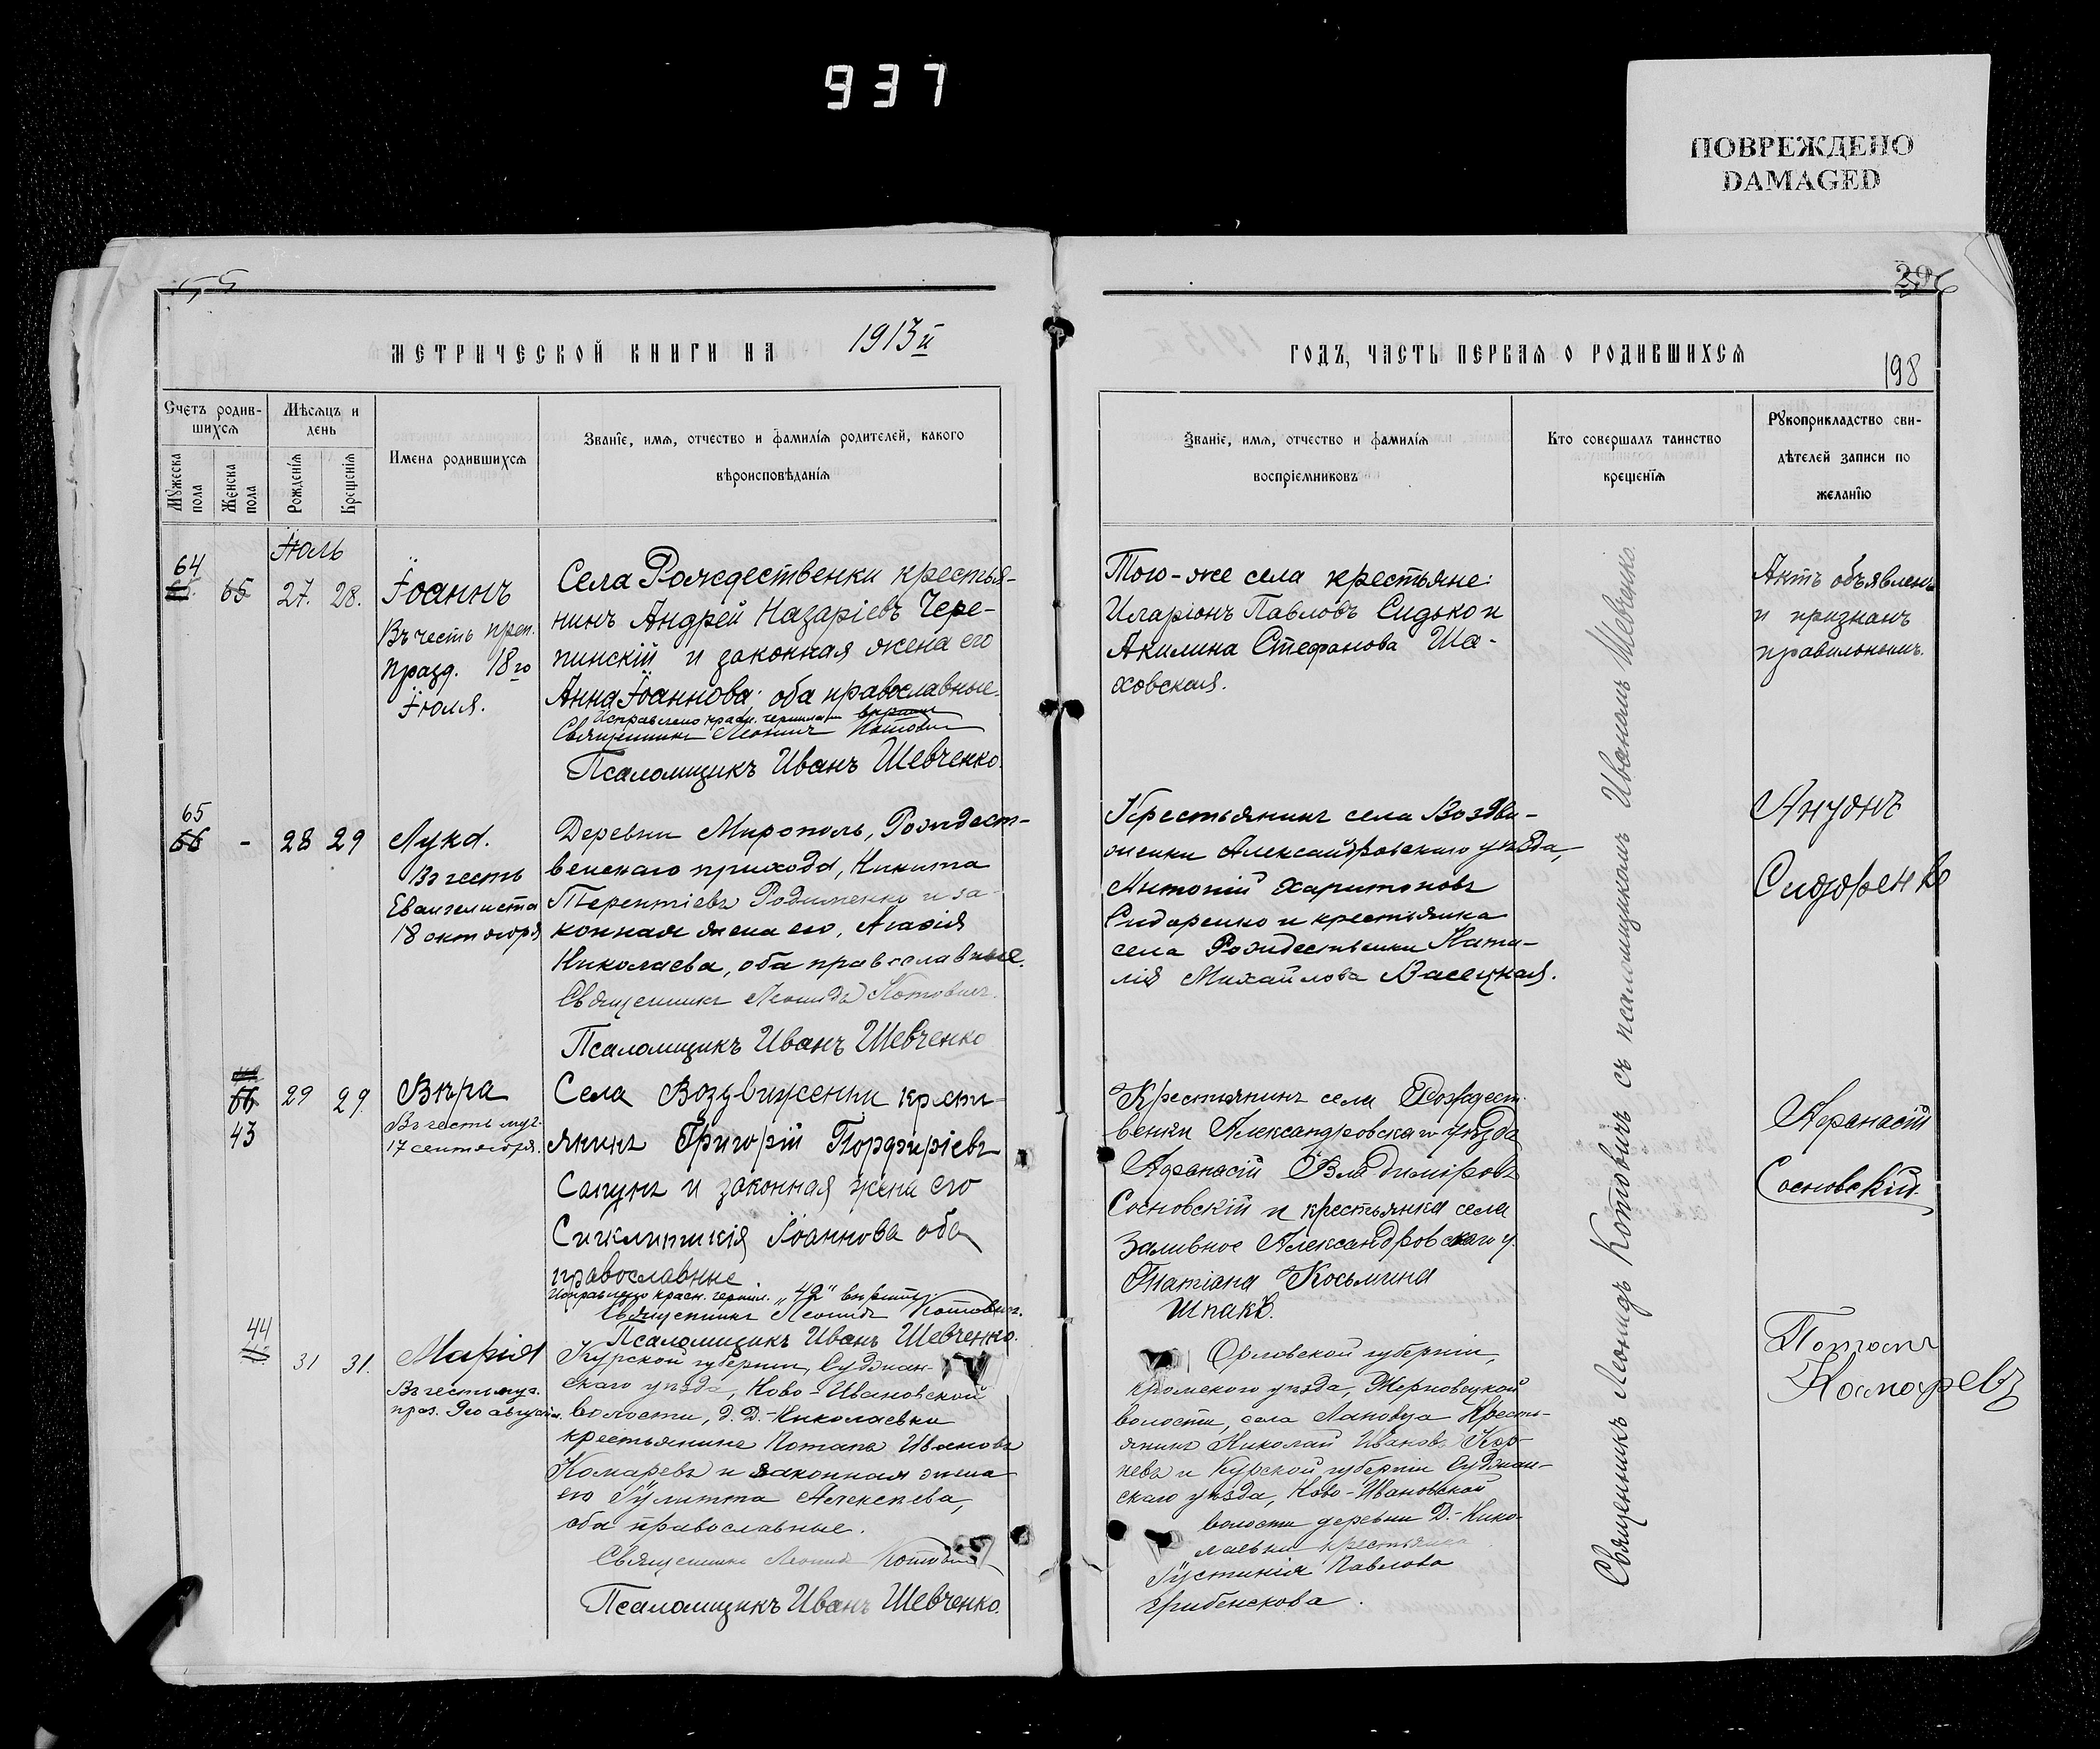 937
ПОВРЕЖДЕНО
DAMAGED
55
29
МЕТРИЧЕСКОЙ КНИГИ НА 1913й
ГОДЪ, ЧАСТЬ ПЕРВАЯ О РОДИВШИХСЯ
198
Счетъ родив-
шихся
Мужеска
пола
Женска
пола
Мѣсяцъ и
день
Рожденія
Крещенія
Имена родившихся
Званіе, имя, отчество и фамилія родителей, какого
вѣроисповѣданія
Званіе, имя, отчество и фамилія
воспріемниковъ
Кто совершалъ таинство
крещенія
Рукоприкладство сви-
дѣтелей записи по
желанію
Іюль
64
65 27. 28.
Іоаннъ
Въ честь преп.
празд. 18го
Іюля.
Села Рождественки крестья-
нинъ Андрей Назаріевъ Чере-
пинскій и законная жена его
Анна Іоаннова; оба православные.
Исправлено красн. чернилами вѣрно
Священникъ Леонидъ Котовичъ
Псаломщикъ Иванъ Шевченко.
Того-же села крестьяне:
Иларіонъ Павловъ Сидько и
Акилина Стефанова Ша-
ховская.
Актъ объявленъ
и признанъ
правильнымъ.
65
66 - 28 29
Лука.
Въ честь
Евангелиста
18 октября
Деревни Мирополь, Рождест-
венскаго прихода, Никита
Терентіевъ Радименко и за-
конная жена его, Агафія
Николаева, оба православные.
Священникъ Леонидъ Котовичъ.
Псаломщикъ Иванъ Шевченко
Крестьянинъ села Воздви-
женки Александровскаго уѣзда,
Антоній Харитоновъ
Сидоренко и крестьянка
села Рождественки Ната-
лія Михайлова Васецкая.
Андонъ
Сидоренко
66
43
29 29.
Вѣра
Въ честь муч.
17 сентября.
Села Воздвиженки крестья-
янинъ Григорій Порфиріевъ
Сапунъ и законная жена его
Сикликитія Іоаннова оба
православные
Исправлено красн. чернил. „42" вѣрить:
Священникъ Леонидъ Котовичъ.
Псаломщикъ Иванъ Шевченко.
Крестьянинъ села Рождест-
венки Александровскаго уѣзда
Афанасій Владиміровъ
Сосновскій и крестьянка села
Заливное Александровскаго у.
Татіана Косьмина
Шпакъ.
Афанасій
Сосновскій.
44
31 31.
Марія
Въ честь муч.
праз. 9го августа.
Курской губерніи, Суджан-
скаго уѣзда, Ново-Ивановской
волости, д. Д.-Николаевки
крестьянине Потапъ Ивановъ
Комаревъ и законная жена
его Іулитта Алексѣева,
оба православные.
Священникъ Леонидъ Котовичъ
Псаломщикъ Иванъ Шевченко.
Орловской губерніи,
Кромскаго уѣзда,
волости, села крестья-
янинъ Николай Ивановъ Кор-
невъ и Курской губерніи Суджан-
скаго уѣзда, Ново-Ивановской
волости деревни Д.-Нико-
лаевки крестьянка
Іустинія Павлова
Грибенскова.
Потапъ
Комаревъ
Священникъ Леонидъ Котовичъ съ псаломщикомъ Иваномъ Шевченко.